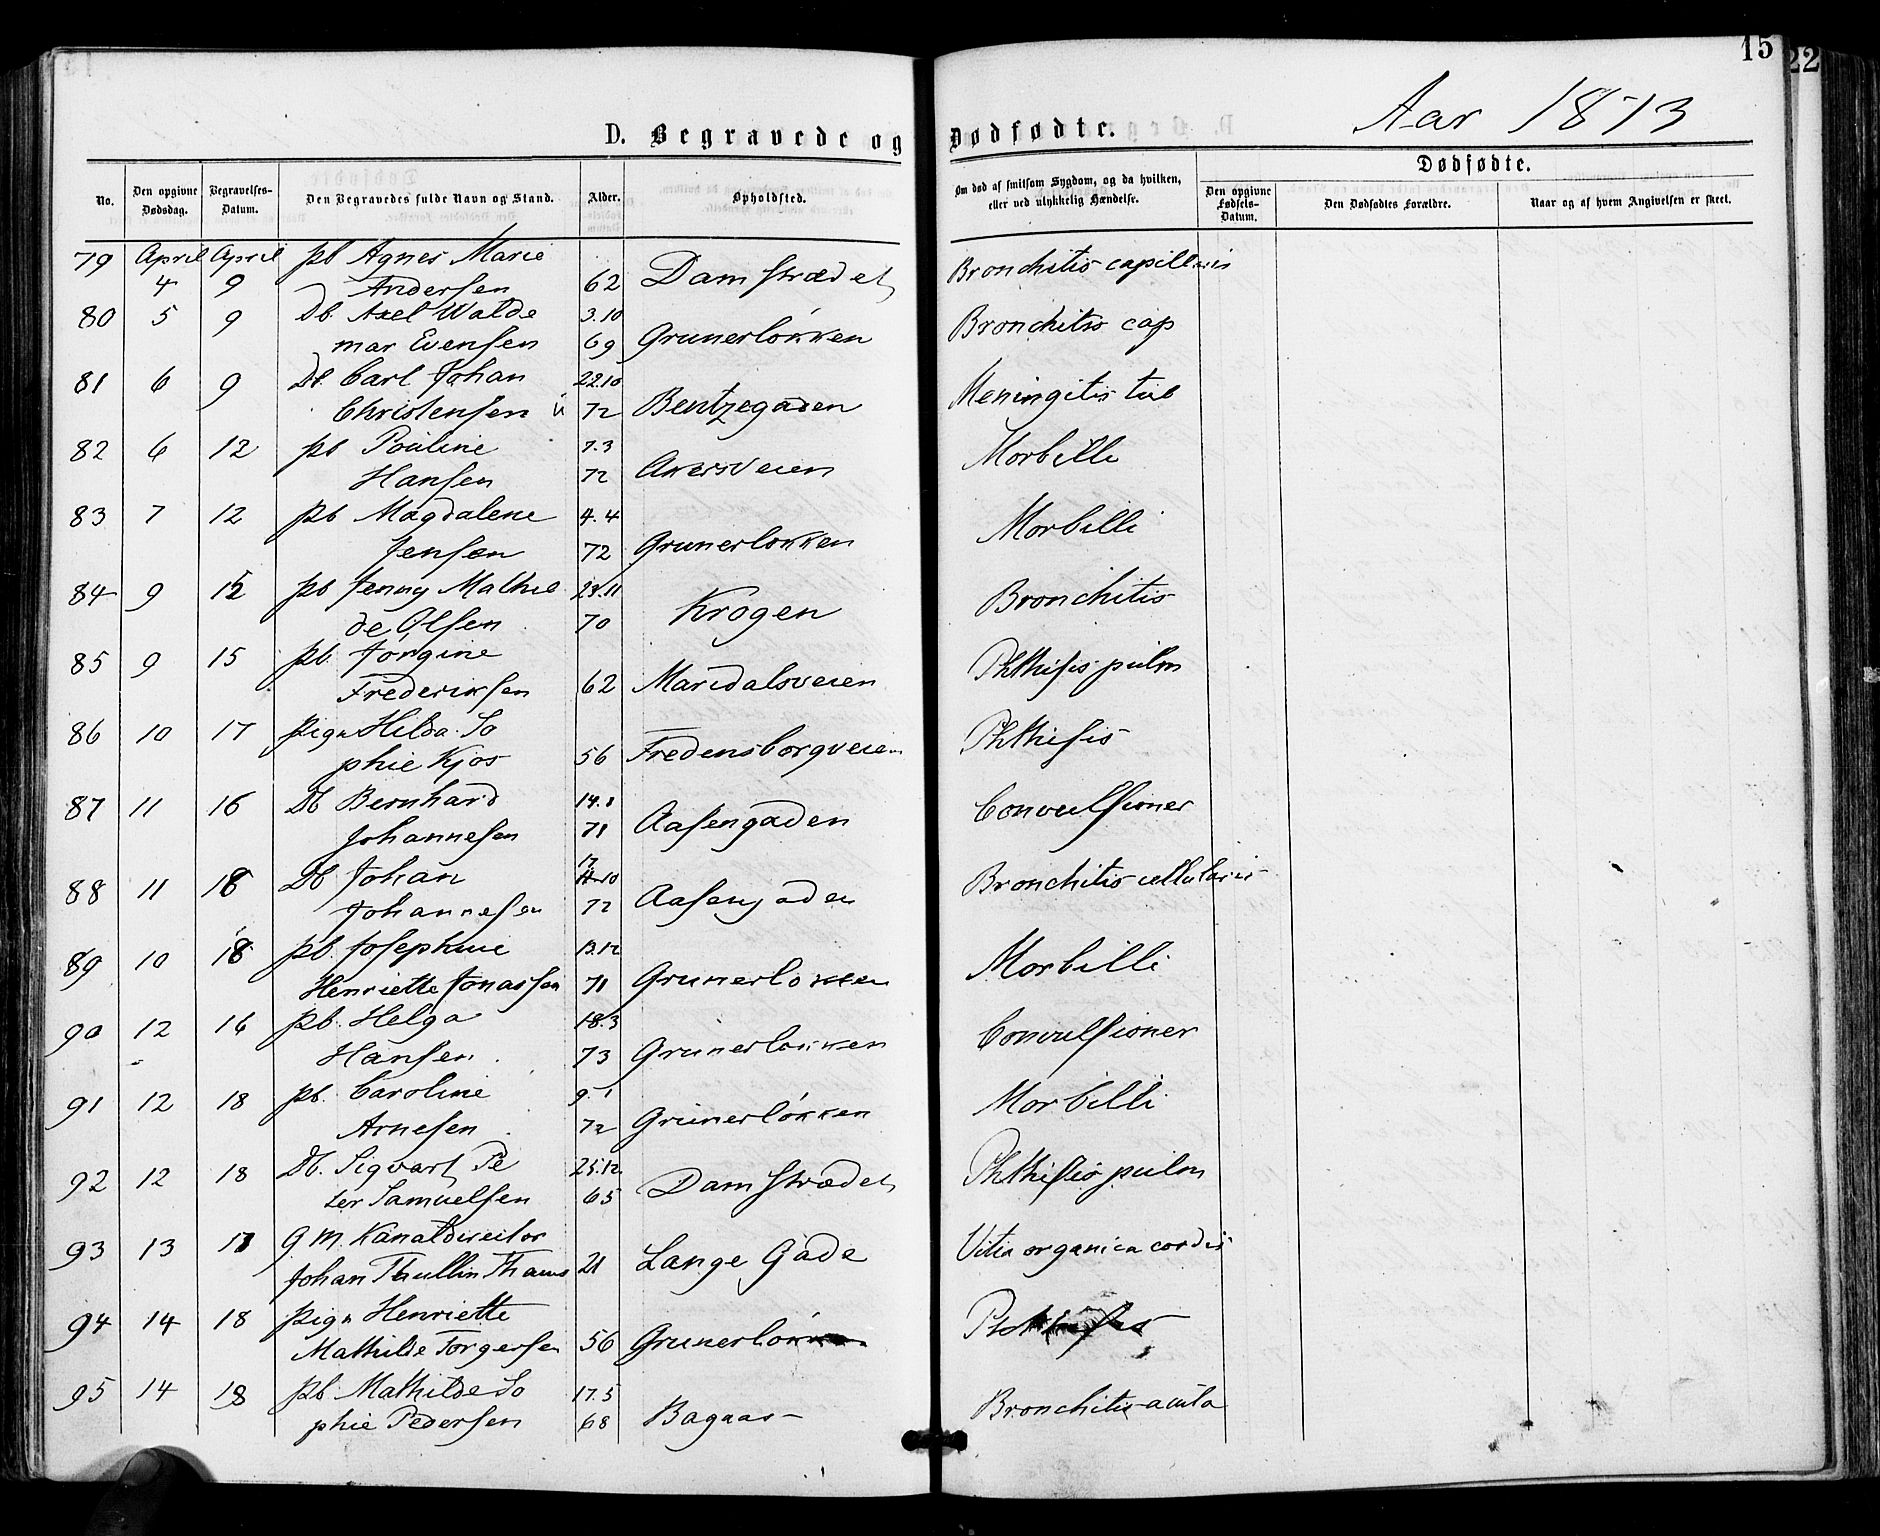 15
22
Aar 1873
D. Begravede og Dødfødte.
Dødfødte.
No.
Den opgivne Dødsdag.
Begravelses-Datum.
Den Begravedes fulde Navn og Stand.
Alder.
Opholdsted.
Om død af smitsom Sygdom, og da hvilken, eller ved ulykkelig Hændelse.
Den opgivne Fødsels-Datum.
Den Dødfødtes Forældre.
Naar og af hvem Angivelsen er skeet.
79 April April pb Agnes Marie
4 9 Andersen 62 Damstrædet Bronchitis capillaris
80 5 9 Db. Axel Walde 3.10
mar Evensen 69 Grunerløkken Bronchitis cap
81 6 9 Db. Carl Johan 22.10
Christensen 72 Bentzegaden Meningitis tub
82 6 12 pb Pauline 7.3
Hansen 72 Akersveien Morbilli
83 7 12 pb Magdalene 4.4
Jensen 72 Grunerløkken Morbilli
84 9 12 pb Jenny Mathil 23.11
de Olsen 70 Krogen Bronchitis
85 9 15 pb. Jørgine
Frederiksen 62 Maridalsveien Phthisis pulm
86 10 17 pige Hilda So
phie Kjos 56 Fredensborgveien Phthisis
87 11 16 Db Bernhard 14.8
Johannesen 71 Aasengaden Convulsioner
88 11 18 Db Johan 17 10
Johannesen 72 Aasengaden Bronchitis cellularis
89 10 18 pb. Josephine 13.12
Henriette Jonassen 71 Grunerløkken Morbilli
90 12 16 pb. Helga 18.3
Hansen 73 Grunerløkken Convulsioner
91 12 18 pb. Caroline 9.1
Arnesen 72 Grünerløkken Morbilli
92 12 18 Db. Sigvart Pe 25.12
ter Samuelsen 65 Damstrædet Phthisis pulm
93 13 17 g M. Kanaldirector
Johan Thullin Thams 21 Lange Gade Vitia organica cordis
94 14 18 pige Henriette
Mathilde Torgersen 56 Grunerløkken
95 14 18 pb. Mathilde So 17.5
phie Pedersen 68 Bagaas Bronchitis acuta